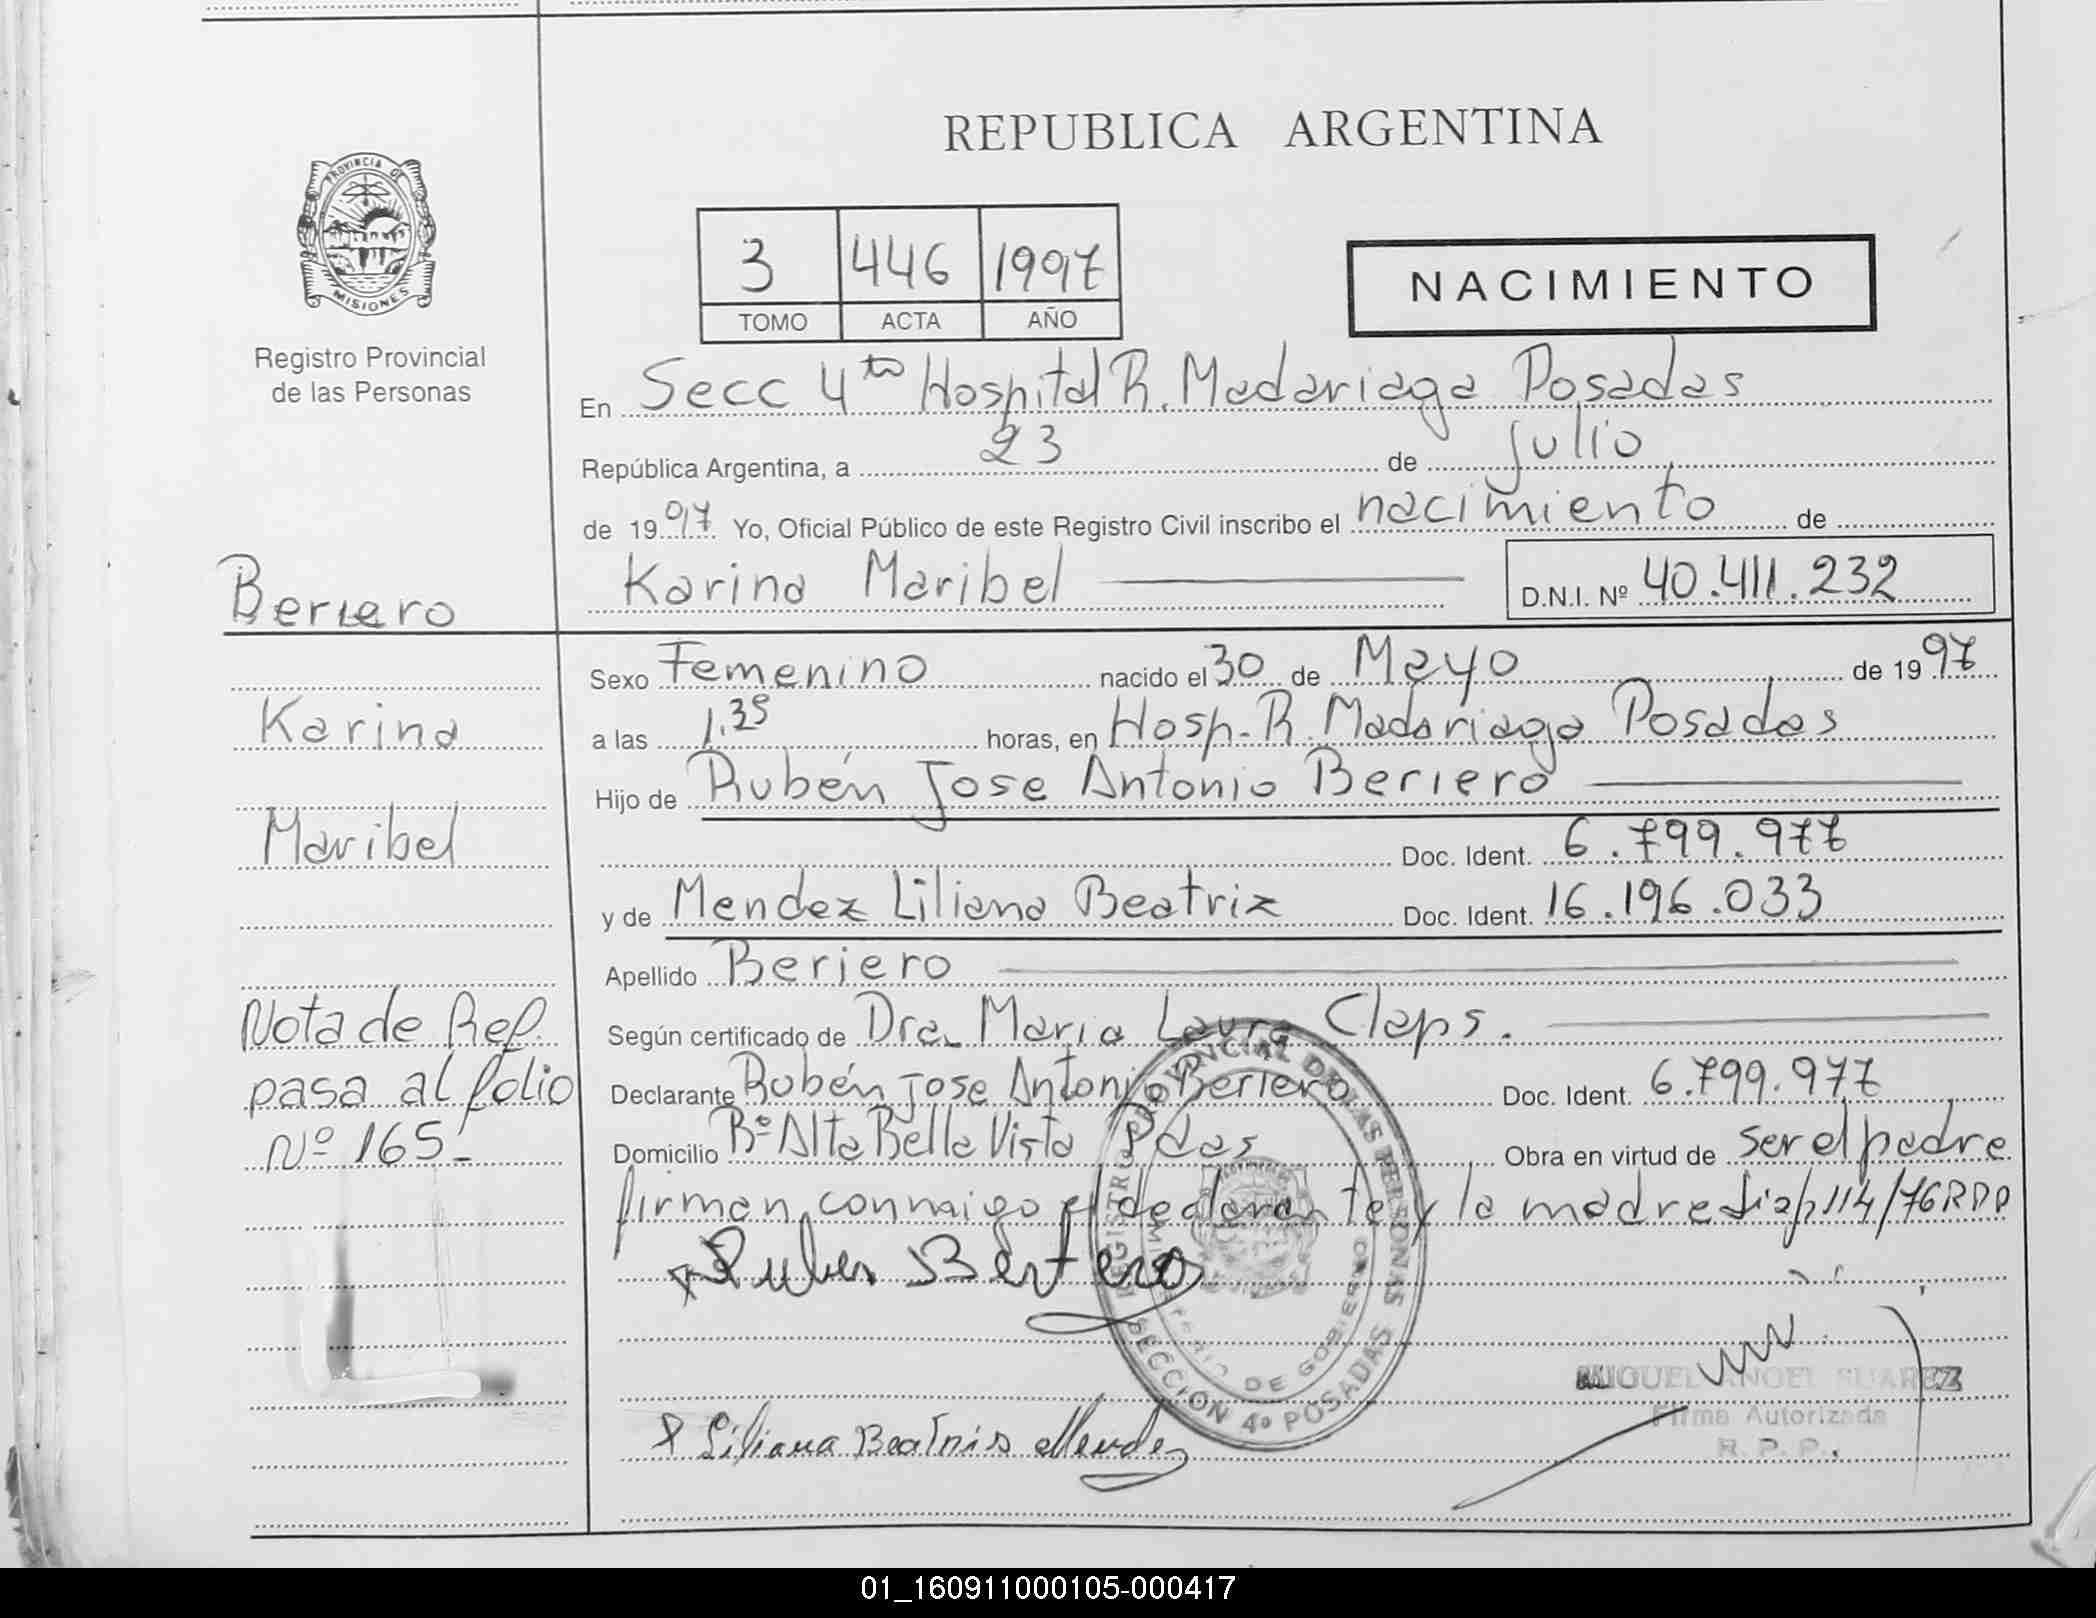 REPUBLICA ARGENTINA
PROVINCIA DE
MISIONES
Registro Provincial
de las Personas
3 446 1997
TOMO ACTA AÑO
NACIMIENTO
En Secc 4ta Hospital R. Madariaga Posadas
República Argentina, a 23 de Julio
de 1997 Yo, Oficial Público de este Registro Civil inscribo el nacimiento de
Karina Maribel D.N.I. Nº 40.411.232
Beriero
Karina
Maribel
Nota de Ref.
pasa al folio
Nº 165-
Sexo Femenino nacido el 30 de Mayo de 1997
a las 1.35 horas, en Hosp. R. Madariaga Posadas
Hijo de Rubén Jose Antonio Beriero
Doc. Ident. 6.799.977
y de Mendez Liliana Beatriz Doc. Ident. 16.196.033
Apellido Beriero
Según certificado de Dra. Maria Laura Claps.
Declarante Rubén Jose Antonio Beriero Doc. Ident. 6.799.977
Domicilio Bº Alta Bella Vista Pdas Obra en virtud de ser el padre
firman conmigo el declarante y la madre Disp 114/76 RPP
Ruben Beriero
REGISTRO PROVINCIAL DE LAS PERSONAS
MINISTERIO DE GOBIERNO
SECCION 4º POSADAS
MIGUEL ANGEL SUAREZ
Firma Autorizada
R. P. P.
Liliana Beatris Mendez
01_160911000105-000417